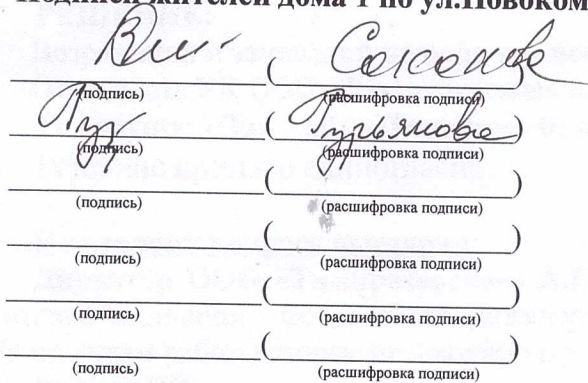 Подписи жителей дома 1 по ул.Новоком
( Сасонова )
(подпись) (расшифровка подписи)
( )
(подпись) (расшифровка подписи)
( )
(подпись) (расшифровка подписи)
( )
(подпись) (расшифровка подписи)
( )
(подпись) (расшифровка подписи)
( )
(подпись) (расшифровка подписи)